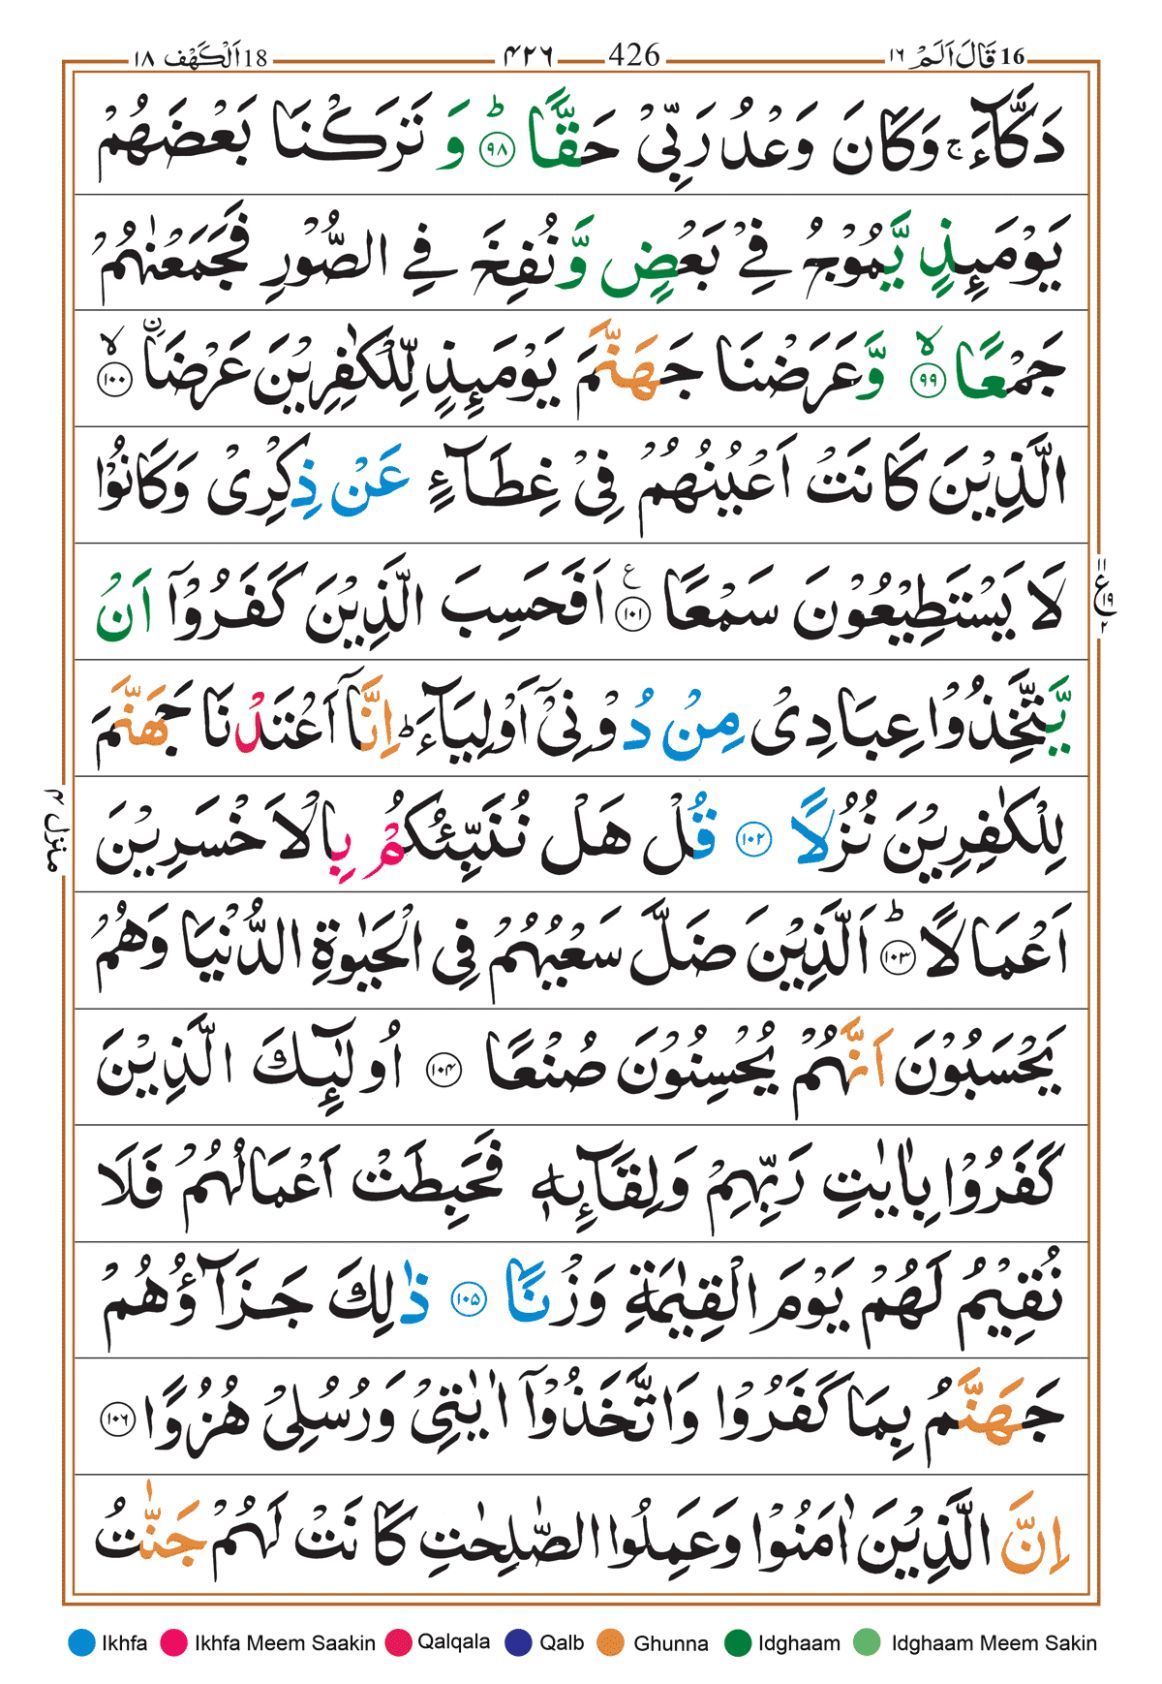 16 قَالَ اَلَمْ ١٦ 426 ۴۲۶ 18 اَلْكَهْف ١٨
دَكَّآءَ ۚ وَكَانَ وَعْدُ رَبِّىْ حَقًّا ؕ ﴿۹۸﴾ وَ تَرَكْنَا بَعْضَهُمْ
يَوْمَٮِٕذٍ يَّمُوْجُ فِىْ بَعْضٍ وَّنُفِخَ فِى الصُّوْرِ فَجَمَعْنٰهُمْ
جَمْعًا ۙ ﴿۹۹﴾ وَّعَرَضْنَا جَهَنَّمَ يَوْمَٮِٕذٍ لِّلْكٰفِرِيْنَ عَرْضَاۨ ۙ ﴿۱۰۰﴾
الَّذِيْنَ كَانَتْ اَعْيُنُهُمْ فِىْ غِطَآءٍ عَنْ ذِكْرِىْ وَكَانُوْا
لَا يَسْتَطِيْعُوْنَ سَمْعًا ﴿۱۰۱﴾ ع اَفَحَسِبَ الَّذِيْنَ كَفَرُوْۤا اَنْ
۱۱ ع ۱۹ ۲
يَّتَّخِذُوْا عِبَادِىْ مِنْ دُوْنِىْۤ اَوْلِيَآءَ ؕ اِنَّاۤ اَعْتَدْنَا جَهَنَّمَ
لِلْكٰفِرِيْنَ نُزُلًا ﴿۱۰۲﴾ قُلْ هَلْ نُنَبِّئُكُمْ بِالْاَخْسَرِيْنَ
منزل ۴
اَعْمَالًا ؕ ﴿۱۰۳﴾ اَلَّذِيْنَ ضَلَّ سَعْيُهُمْ فِى الْحَيٰوةِ الدُّنْيَا وَهُمْ
يَحْسَبُوْنَ اَنَّهُمْ يُحْسِنُوْنَ صُنْعًا ﴿۱۰۴﴾ اُولٰٓٮِٕكَ الَّذِيْنَ
كَفَرُوْا بِاٰيٰتِ رَبِّهِمْ وَلِقَآٮِٕهٖ فَحَبِطَتْ اَعْمَالُهُمْ فَلَا
نُقِيْمُ لَهُمْ يَوْمَ الْقِيٰمَةِ وَزْنًا ﴿۱۰۵﴾ ذٰلِكَ جَزَآؤُهُمْ
جَهَنَّمُ بِمَا كَفَرُوْا وَاتَّخَذُوْۤا اٰيٰتِىْ وَرُسُلِىْ هُزُوًا ﴿۱۰۶﴾
اِنَّ الَّذِيْنَ اٰمَنُوْا وَعَمِلُوا الصّٰلِحٰتِ كَانَتْ لَهُمْ جَنّٰتُ
Ikhfa Ikhfa Meem Saakin Qalqala Qalb Ghunna Idghaam Idghaam Meem Sakin